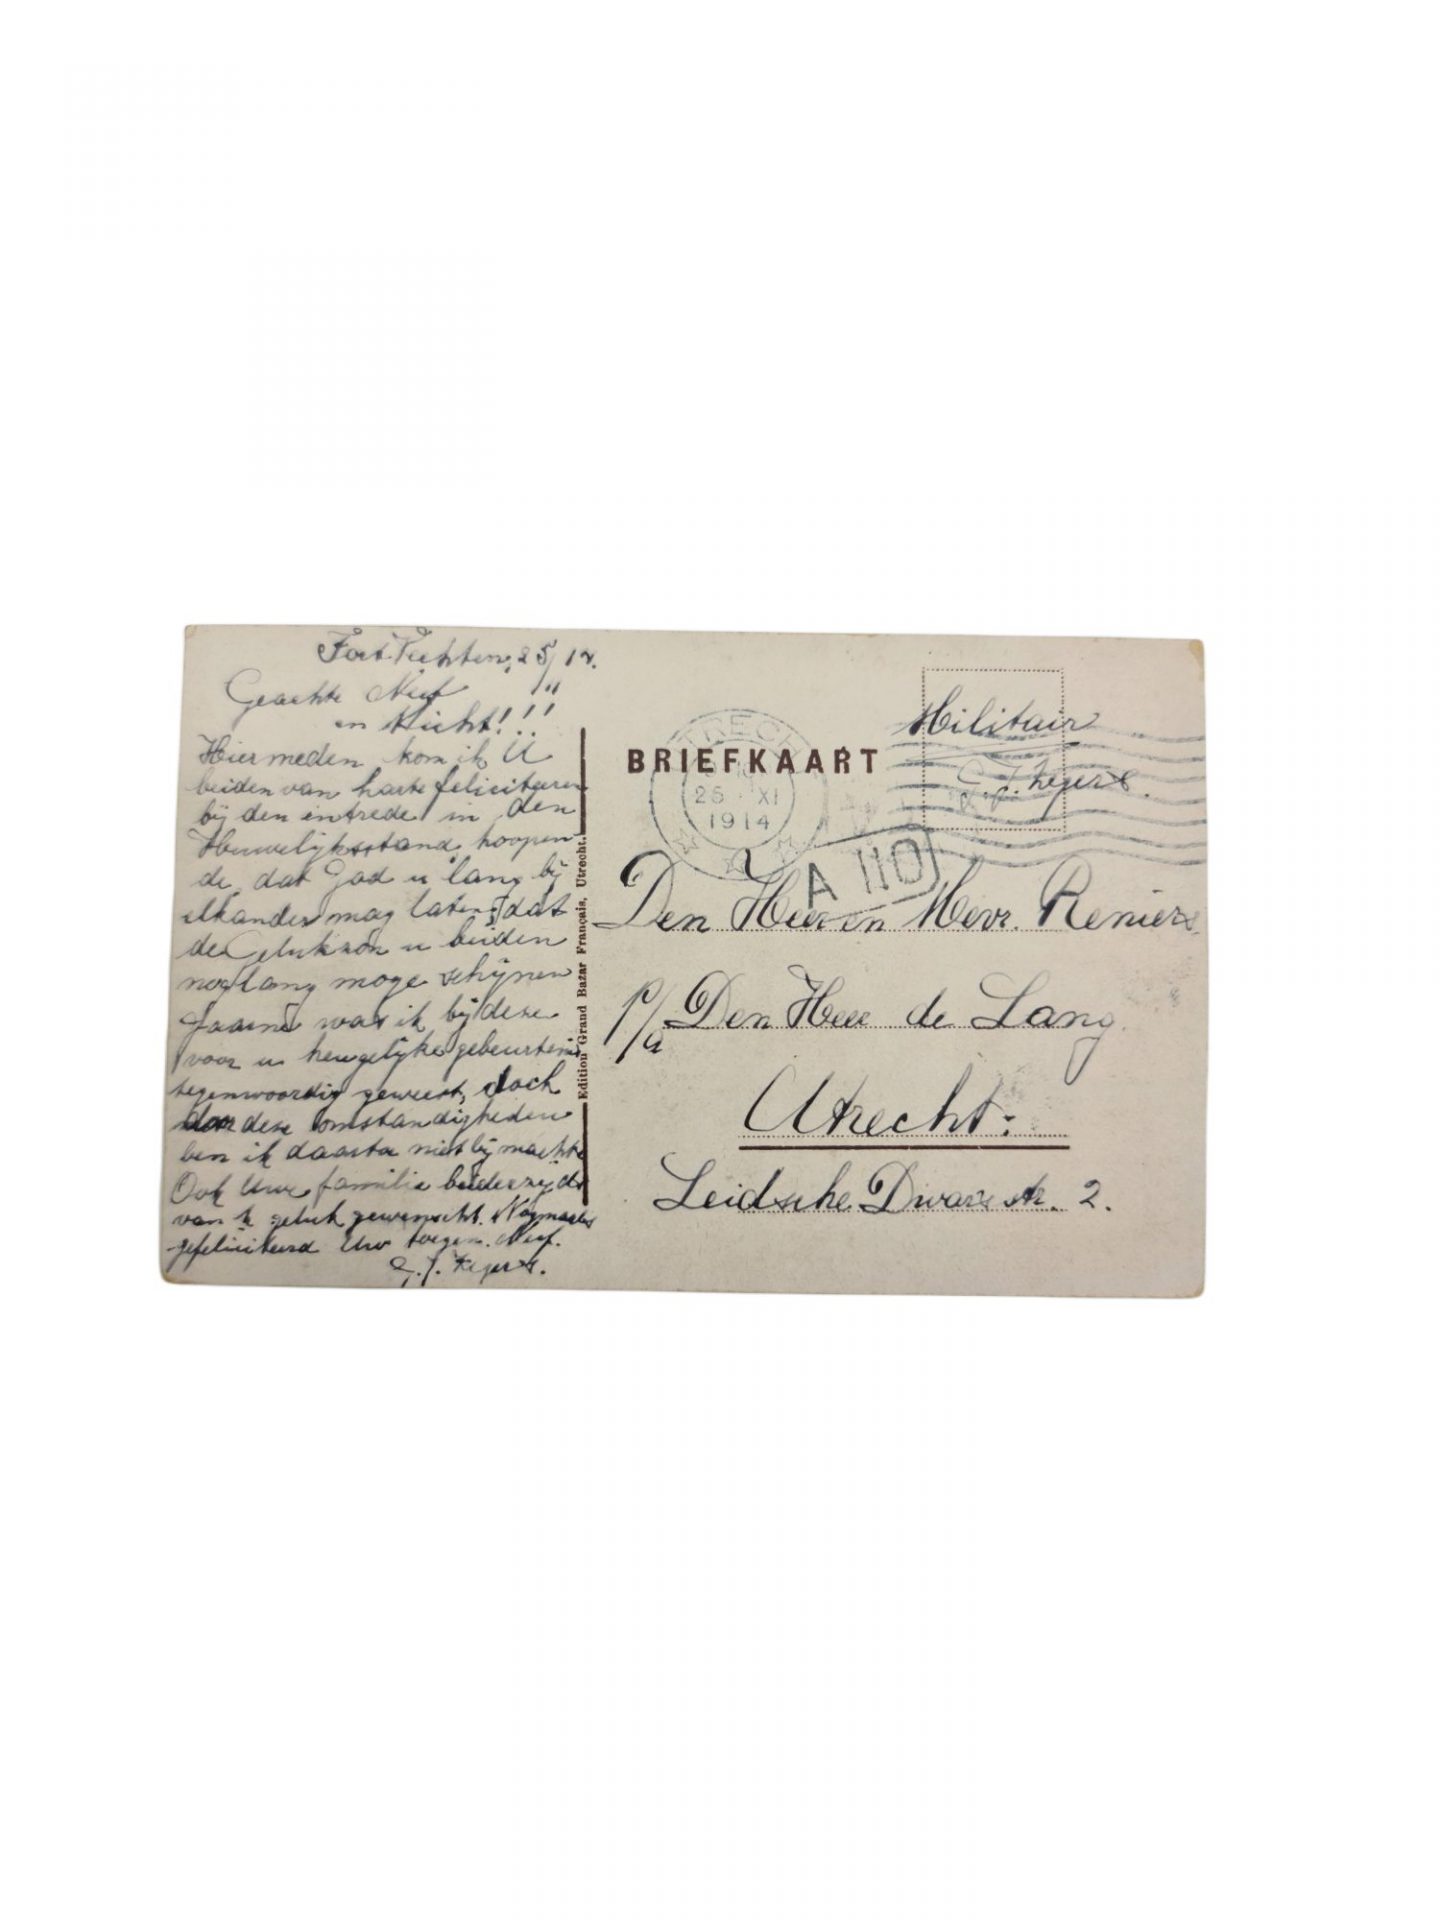 Fort Vechten, 25/14.
Geachte Neef
en Nicht!!!
Hiermeden kom ik U
beiden van harte feliciteeren
bij den intrede in den
Huwelijksstand, hoopen-
de, dat God u lang bij
elkander mag laten, dat
de Gelukzon u beiden
nog lang moge schijnen
Gaarne was ik bij deze
voor u heugelijke gebeurtenis
tegenwoordig geweest, doch
door deze omstandigheden
ben ik daartoe niet bij machte
Ook Uwe familie beiderzijds
van 't geluk gewenscht. Nogmaals
gefeliciteerd Uw toegen. Neef.
G. J. Zegers.
Edition Grand Bazar Français, Utrecht.
BRIEFKAART
UTRECHT
25 XI
1914
Militair
G. J. Zegers.
A 110
Den Heer en Mevr. Reniers
p/a Den Heer de Lang
Utrecht:
Leidsche Dwars str. 2.